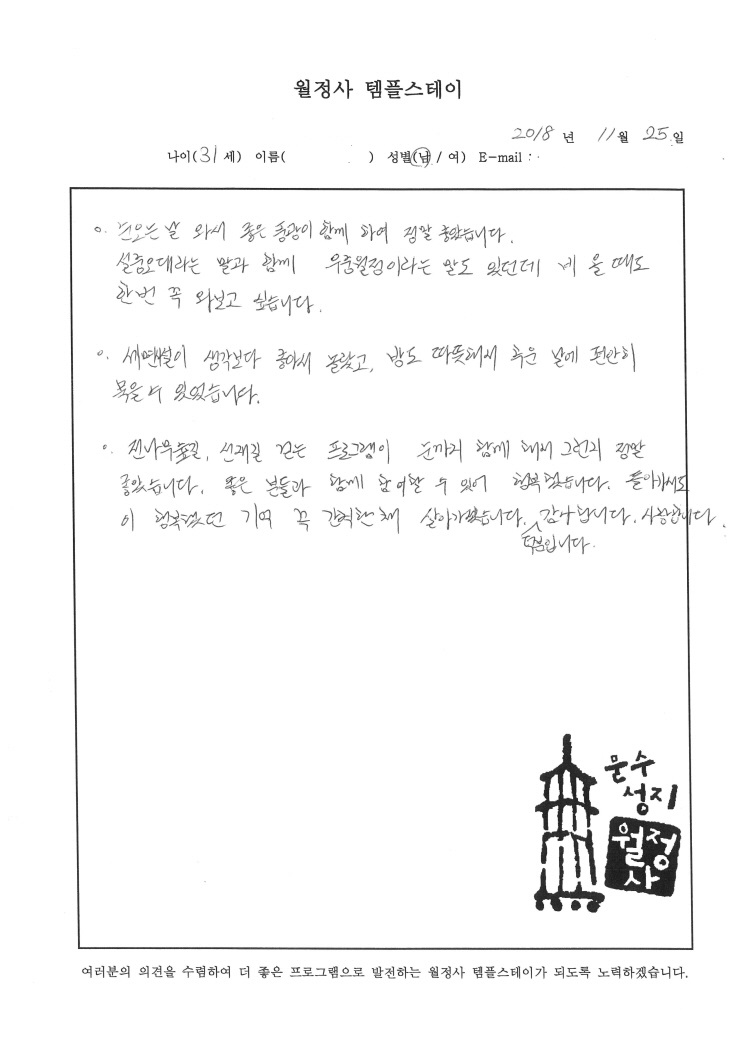 월정사 템플스테이
2018 년 11월 25일
나이(31세) 이름( ) 성별(남 / 여) E-mail :
눈오는 날 와서 좋은 풍광이 함께 하여 정말 좋았습니다.
설중오대라는 말과 함께 우중월정이라는 말도 있던데 비 올 때도
한번 꼭 와보고 싶습니다.
세면시설이 생각보다 좋아서 놀랐고, 방도 따뜻해서 추운 날에 편안히
묵을 수 있었습니다.
전나무숲길, 선재길 걷는 프로그램이 눈까지 함께 해서 그런지 정말
좋았습니다. 좋은 분들과 함께 참여할 수 있어 행복했습니다. 돌아가서도
이 행복했던 기억 꼭 간직한채 살아가겠습니다. 감사합니다. 사랑합니다.
덕분입니다.
문수
성지
월정
사
여러분의 의견을 수렴하여 더 좋은 프로그램으로 발전하는 월정사 템플스테이가 되도록 노력하겠습니다.